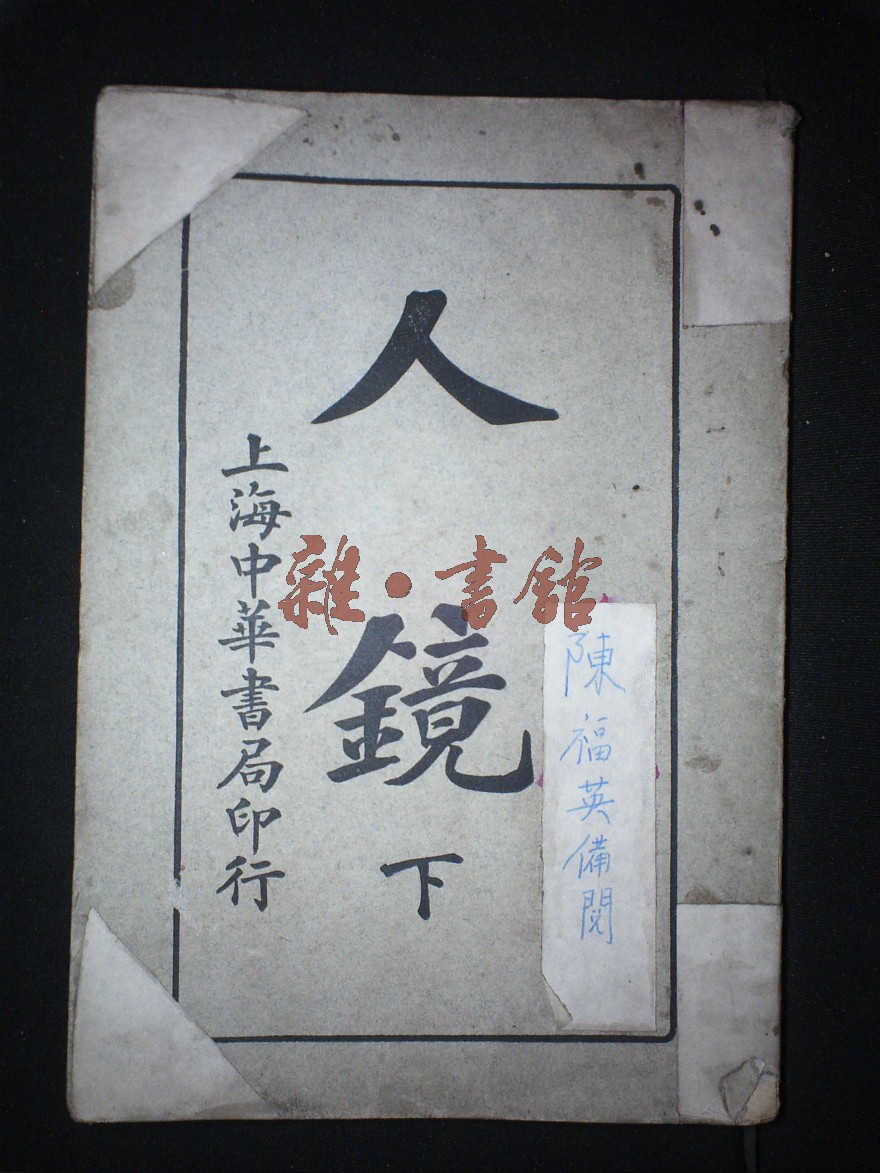 陳福英備閱
人鏡下
上海中華書局印行
雜·書館